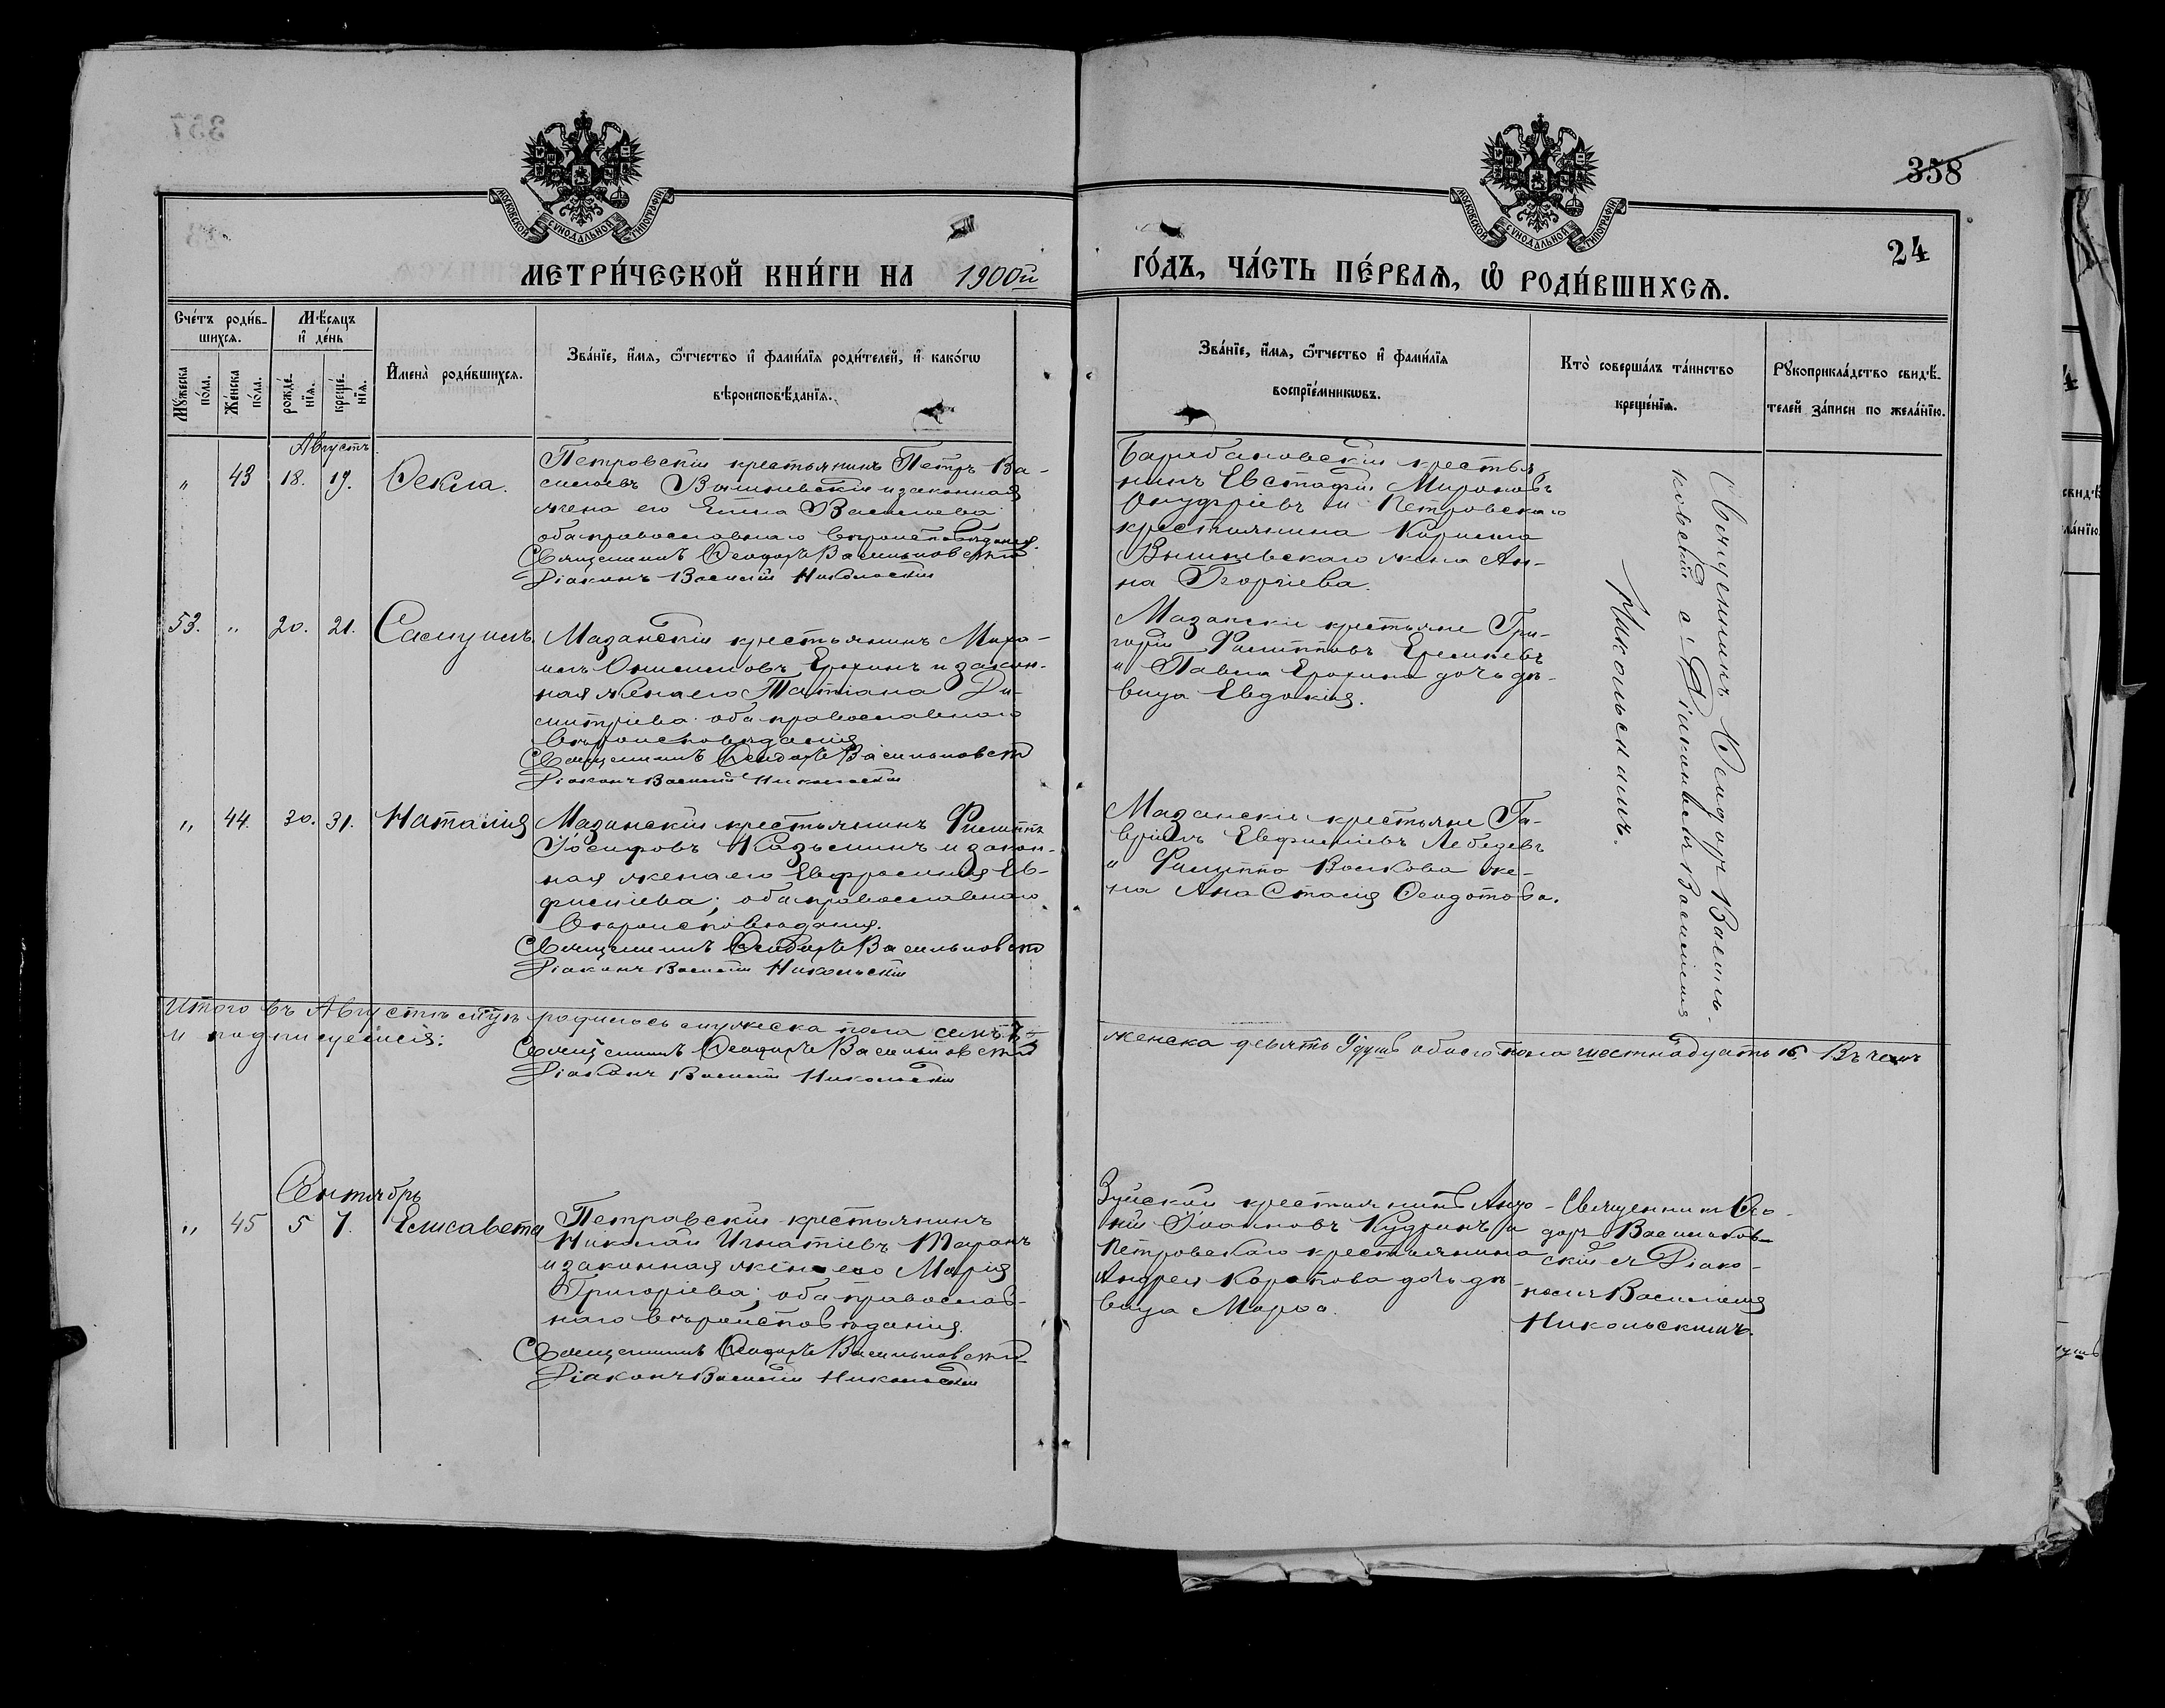 358
24
МОСКОВСКОЙ СѴНОДАЛЬНОЙ ТИПОГРАФІИ
МОСКОВСКОЙ СѴНОДАЛЬНОЙ ТИПОГРАФІИ
МЕТРИ́ЧЕСКОЙ КНИ́ГИ НА 1900й
ГО́ДЪ, ЧА́СТЬ ПЕ́РВАѦ, Ѡ҆ РОДИ́ВШИХСѦ.
Сче́тъ роди́в-
шихсѧ.
Мꙋ́жеска
по́ла.
Же́нска
по́ла.
Мѣ́сѧцъ
и҆ де́нь
рожде́-
нїѧ.
креще́-
нїѧ.
И҆мена̀ роди́вшихсѧ.
Зва́нїе, и҆́мѧ, ѻ҆́тчество и҆ фами́лїѧ роди́телей, и҆ како́гѡ
вѣроисповѣ́данїѧ.
Зва́нїе, и҆́мѧ, ѻ҆́тчество и҆ фами́лїѧ
воспрїе́мникѡвъ.
Кто̀ соверша́лъ та́инство
креще́нїѧ.
Рꙋкоприкла́дство свидѣ́-
телей за́писи по жела́нїю.
Августъ.
„ 43 18. 19. Ѳекла.
Петровскій крестьянинъ Петръ Ва-
сильевъ Вишневскій и законная
жена его Елена Васильева
оба православнаго вѣроисповѣданія.
Священникъ Ѳеодоръ Васильковскій
Діаконъ Василій Никольскій
Барабановскій крестья
нинъ Евстафій Мироновъ
Онуфріевъ и Петровскаго
крестьянина Кирилла
Вишневскаго жена Ан-
на Георгіева.
Священникъ Ѳеодоръ Василь-
ковскій с Діакономъ Василіемъ
Никольскимъ.
53. „ 20. 21. Самуилъ.
Мазанскій крестьянинъ Миро-
нъ Онисимовъ Ерохинъ и закон-
ная жена его Татіана Ди-
митріева оба православнаго
вѣроисповѣданія
Священникъ Ѳеодоръ Васильковскій
Діаконъ Василій Никольскій
Мазанскіе крестьяне Гри-
горій Филипповъ
и Павла Ерохина дочь дѣ-
вица Евдокія.
„ 44. 30. 31. Наталія
Мазанскій крестьянинъ Филиппъ
Іосифовъ Казьминъ и закон-
ная жена его Евфросинія Ев-
фиміева; оба православнаго
вѣроисповѣданія.
Священникъ Ѳеодоръ Васильковскій
Діаконъ Василій Никольскій
Мазанскіе крестьяне Га-
вріилъ Евфиміевъ Лебедевъ
и Филиппа Волкова же-
на Анастасія Ѳеодотова.
Итого въ Августѣ родилось мужеска пола семь 7
женска девять 9 душъ обоего пола шестнадцать 16. Въ чемъ
и подписуемся:
Священникъ Ѳеодоръ Васильковскій
Діаконъ Василій Никольскій
Сентябрь
„ 45 5 7. Елисавета
Петровскій крестьянинъ
Николай Игнатіевъ Таранъ
и законная жена его Марія
Григоріева; оба православ-
наго вѣроисповѣданія.
Священникъ Ѳеодоръ Васильковскій
Діаконъ Василій Никольскій
Зуйскій крестьянинъ
Іоанновъ Кудринъ и
Петровскаго крестьянина
Андрея дочь дѣ-
вица Марѳа.
Священникъ Ѳео-
доръ Васильков-
скій с Діако-
номъ Василіемъ
Никольскимъ.